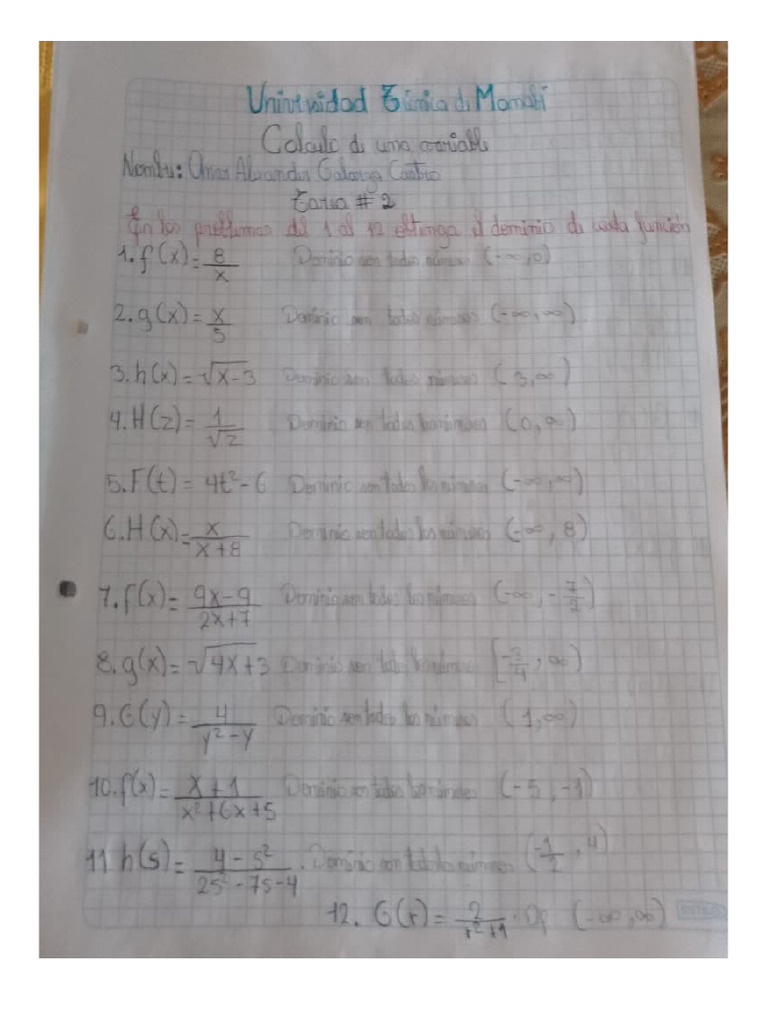 Universidad Técnica de Manabí
Calculo de una variable
Nombre: Omar Alexander Galarza Castro
Tarea # 2
En los problemas del 1 al 12 obtenga el dominio de cada función
1. f(x) = 8/x Dominio son todos números (-∞, 0)
2. g(x) = x/5 Dominio son todos números (-∞, ∞)
3. h(x) = √x-3 Dominio son todos números (3, ∞)
4. H(z) = 1/√z Dominio son todos los números (0, ∞)
5. F(t) = 4t² - 6 Dominio son todos los números (-∞, ∞)
6. H(x) = x/x+8 Dominio son todos los números (-∞, 8)
7. f(x) = 9x-9/2x+7 Dominio son todos los números (-∞, -7/2)
8. g(x) = √4x+3 Dominio son todos los números [-3/4, ∞)
9. G(y) = 4/y²-y Dominio son todos los números (1, ∞)
10. f(x) = x+1/x²+6x+5 Dominio son todos los números (-5, -1)
11 h(s) = 4-s²/2s²-7s-4 . Dominio son todos los números (-1/2, 4)
12. G(r) = 2/r²+1 . (-∞, ∞)